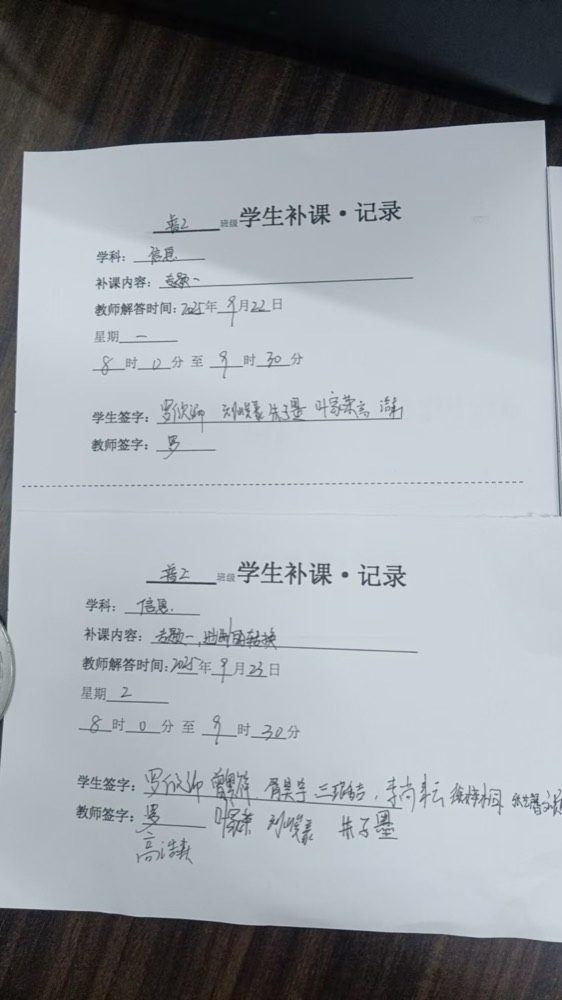 普2 班级 学生补课·记录
学科: 信息
补课内容: 专题一
教师解答时间: 2025年 9月22日
星期 一
8时 0分 至 9时 30分
学生签字: 罗欣妍 刘峻豪 朱子墨 叶家荣
教师签字: 罗
普2 班级 学生补课·记录
学科: 信息
补课内容: 专题一, 转换
教师解答时间: 2025年 9月23日
星期 2
8时 0分 至 9时 30分
学生签字: 罗欣妍 李尚耘
教师签字: 罗 刘峻豪 朱子墨
高浩